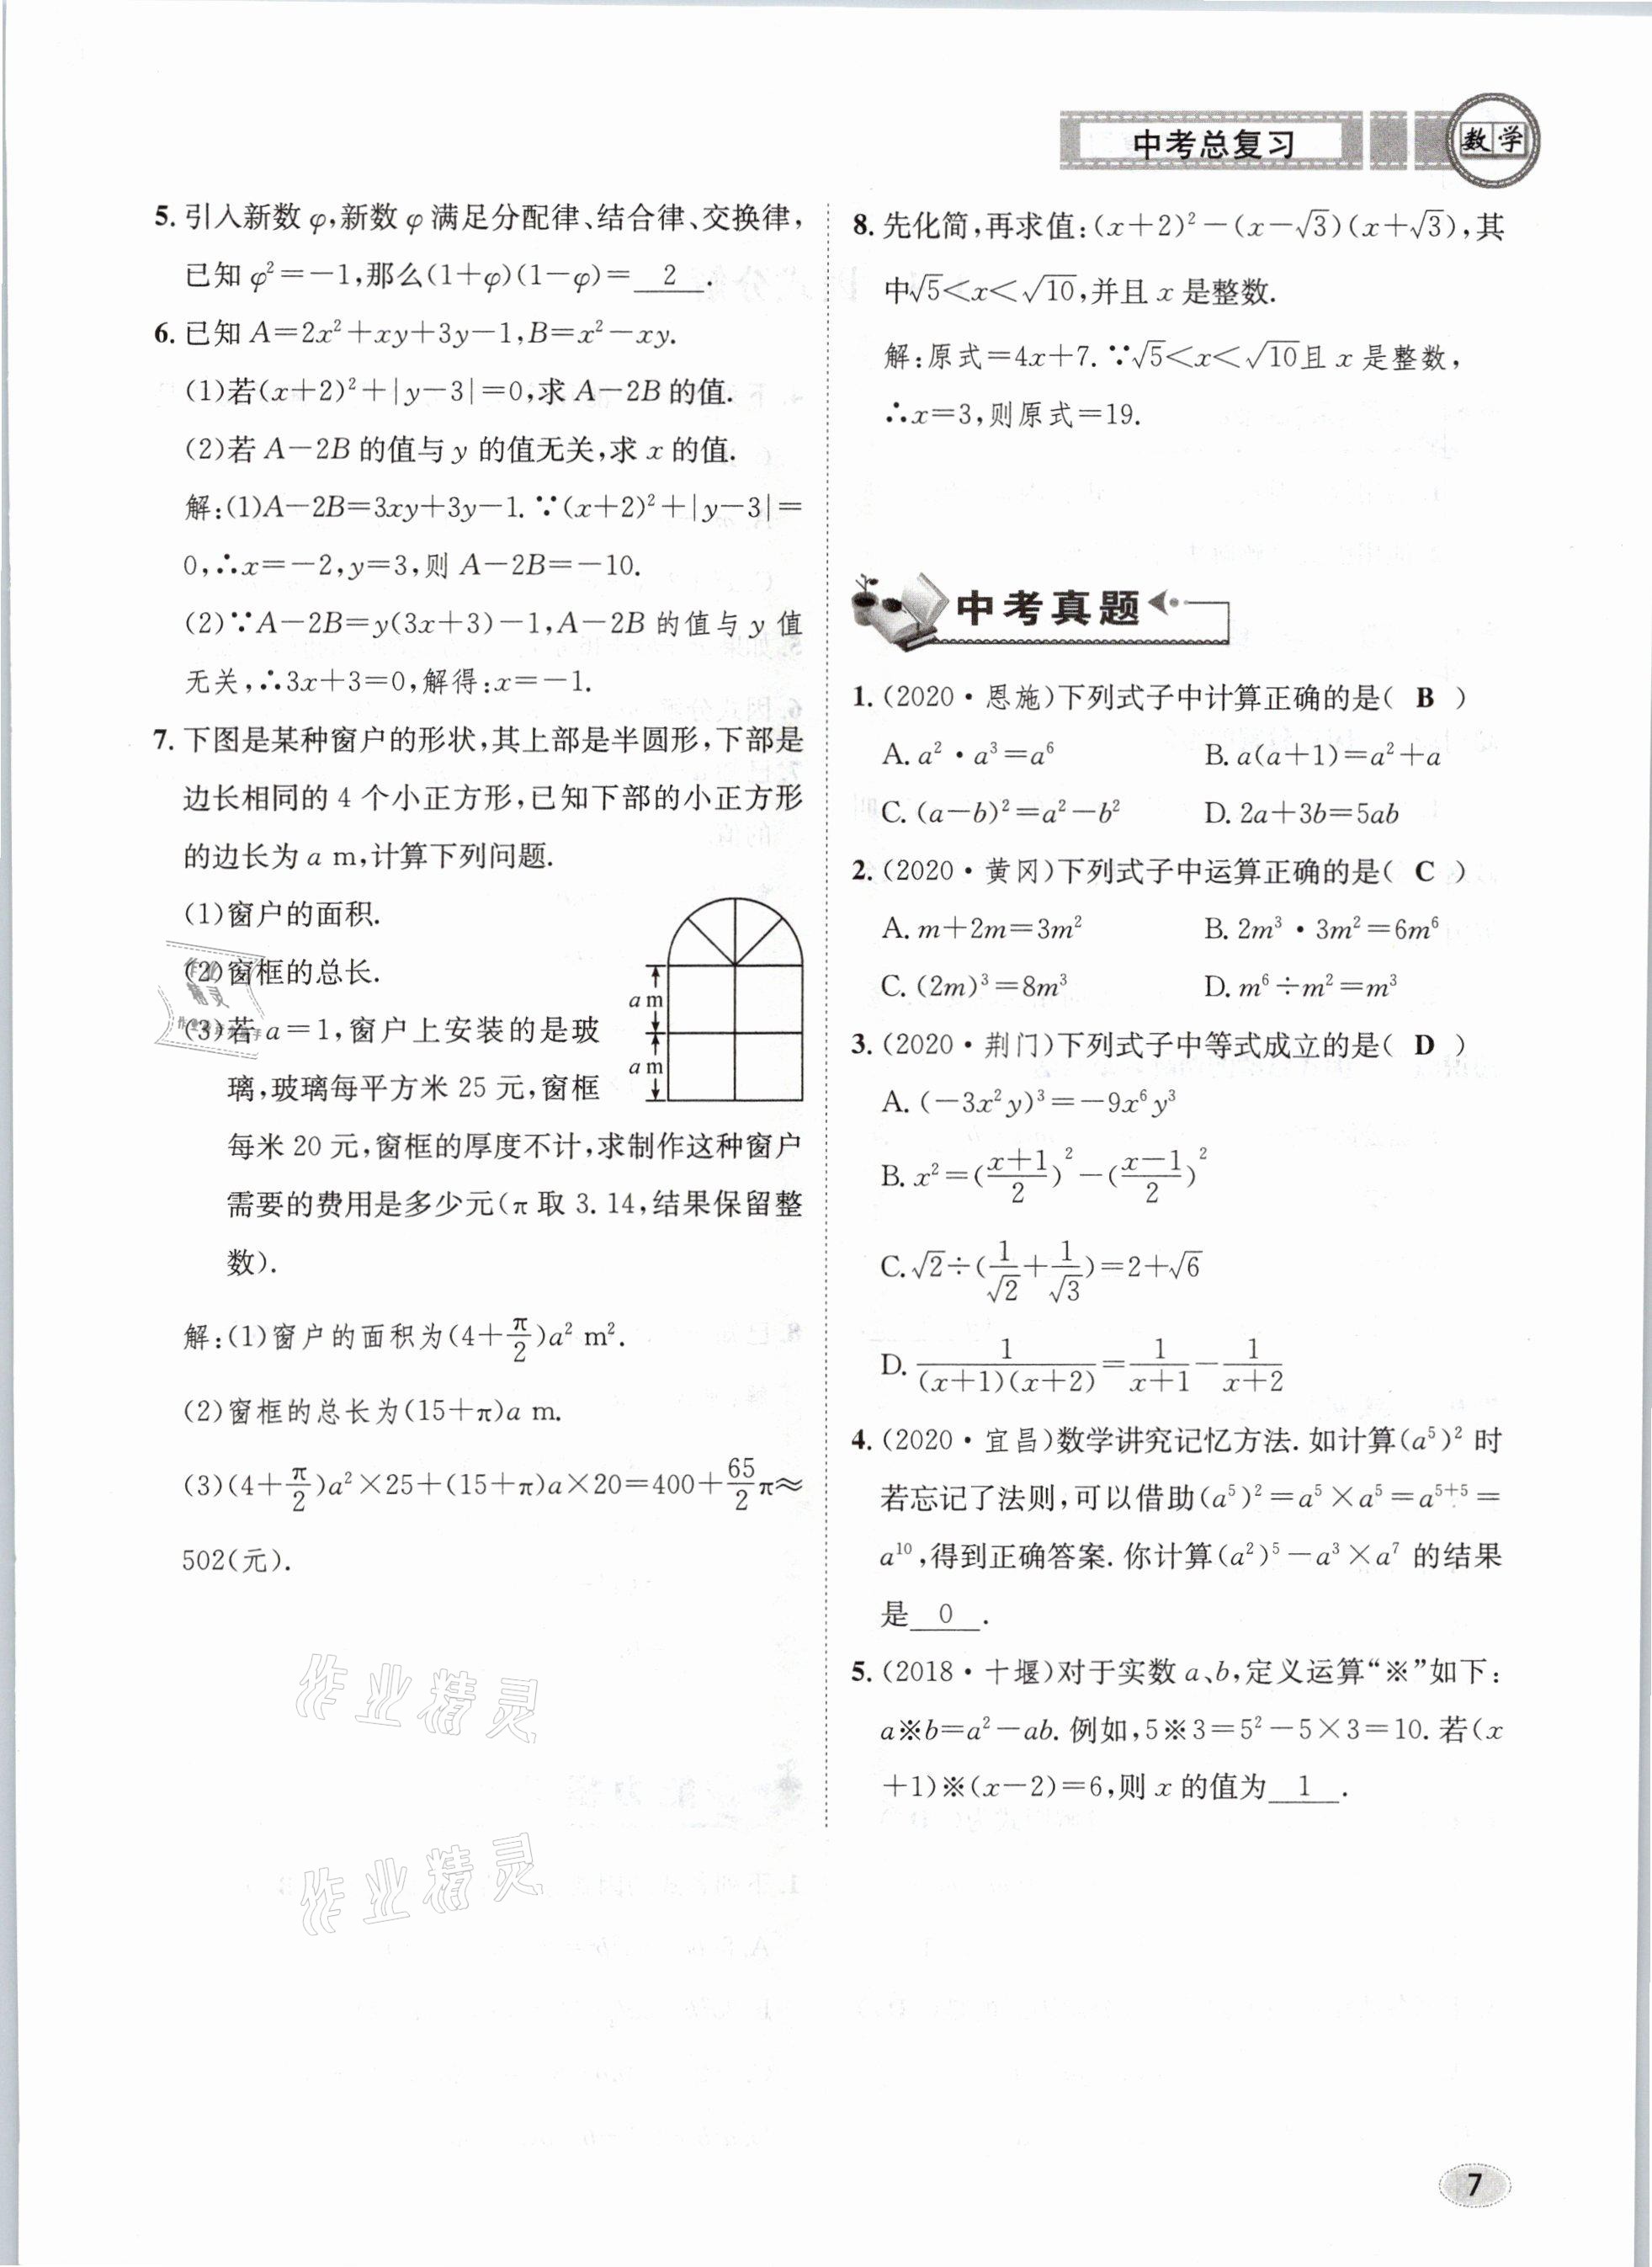 中考总复习
数学
5. 引入新数 φ,新数 φ 满足分配律、结合律、交换律,
已知 φ²=-1,那么(1+φ)(1-φ)= 2 .
6. 已知 A=2x²+xy+3y-1,B=x²-xy.
(1)若(x+2)²+|y-3|=0,求 A-2B 的值.
(2)若 A-2B 的值与 y 的值无关,求 x 的值.
解:(1)A-2B=3xy+3y-1. ∵(x+2)²+|y-3|=
0,∴x=-2,y=3,则 A-2B=-10.
(2)∵A-2B=y(3x+3)-1,A-2B 的值与 y 值
无关,∴3x+3=0,解得:x=-1.
7. 下图是某种窗户的形状,其上部是半圆形,下部是
边长相同的 4 个小正方形,已知下部的小正方形
的边长为 a m,计算下列问题.
(1)窗户的面积.
(2)窗框的总长.
(3)若 a=1,窗户上安装的是玻
璃,玻璃每平方米 25 元,窗框
每米 20 元,窗框的厚度不计,求制作这种窗户
需要的费用是多少元(π 取 3.14,结果保留整
数).
a m
a m
解:(1)窗户的面积为(4+π/2)a² m².
(2)窗框的总长为(15+π)a m.
(3)(4+π/2)a²×25+(15+π)a×20=400+65/2π≈
502(元).
作业精灵
作业精灵
作业
精灵
8. 先化简,再求值:(x+2)²-(x-√3)(x+√3),其
中√5<x<√10,并且 x 是整数.
解:原式=4x+7. ∵√5<x<√10且 x 是整数,
∴x=3,则原式=19.
中考真题
1. (2020·恩施)下列式子中计算正确的是( B )
A. a²·a³=a⁶ B. a(a+1)=a²+a
C. (a-b)²=a²-b² D. 2a+3b=5ab
2. (2020·黄冈)下列式子中运算正确的是( C )
A. m+2m=3m² B. 2m³·3m²=6m⁶
C. (2m)³=8m³ D. m⁶÷m²=m³
3. (2020·荆门)下列式子中等式成立的是( D )
A. (-3x²y)³=-9x⁶y³
B. x²=((x+1)/2)²-((x-1)/2)²
C. √2÷(1/√2+1/√3)=2+√6
D. 1/((x+1)(x+2))=1/(x+1)-1/(x+2)
4. (2020·宜昌)数学讲究记忆方法. 如计算(a⁵)² 时
若忘记了法则,可以借助(a⁵)²=a⁵×a⁵=a⁵⁺⁵=
a¹⁰,得到正确答案. 你计算(a²)⁵-a³×a⁷ 的结果
是 0 .
5. (2018·十堰)对于实数 a、b,定义运算“※”如下:
a※b=a²-ab. 例如,5※3=5²-5×3=10. 若(x
+1)※(x-2)=6,则 x 的值为 1 .
7